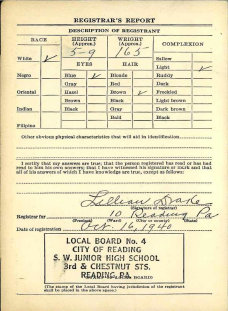 REGISTRAR'S REPORT
DESCRIPTION OF REGISTRANT
RACE HEIGHT (Approx.) WEIGHT (Approx.) COMPLEXION
5-9 165
White ✓ EYES HAIR Sallow
Light ✓
Negro Blue ✓ Blonde Ruddy
Gray Red Dark
Oriental Hazel Brown ✓ Freckled
Brown Black Light brown
Indian Black Gray Dark brown
Bald Black
Filipino
Other obvious physical characteristics that will aid in identification
I certify that my answers are true; that the person registered has read or has had
read to him his own answers; that I have witnessed his signature or mark and that
all of his answers of which I have knowledge are true, except as follows:
Lillian Drake
(Signature of registrar)
Registrar for 10 Reading Pa
(Precinct) (Ward) (City or county) (State)
Date of registration Oct. 16, 1940
LOCAL BOARD No. 4
CITY OF READING
S. W. JUNIOR HIGH SCHOOL
3rd & CHESTNUT STS.
READING, PA.
(The stamp of the Local Board having jurisdiction of the registrant
shall be placed in the above space.)